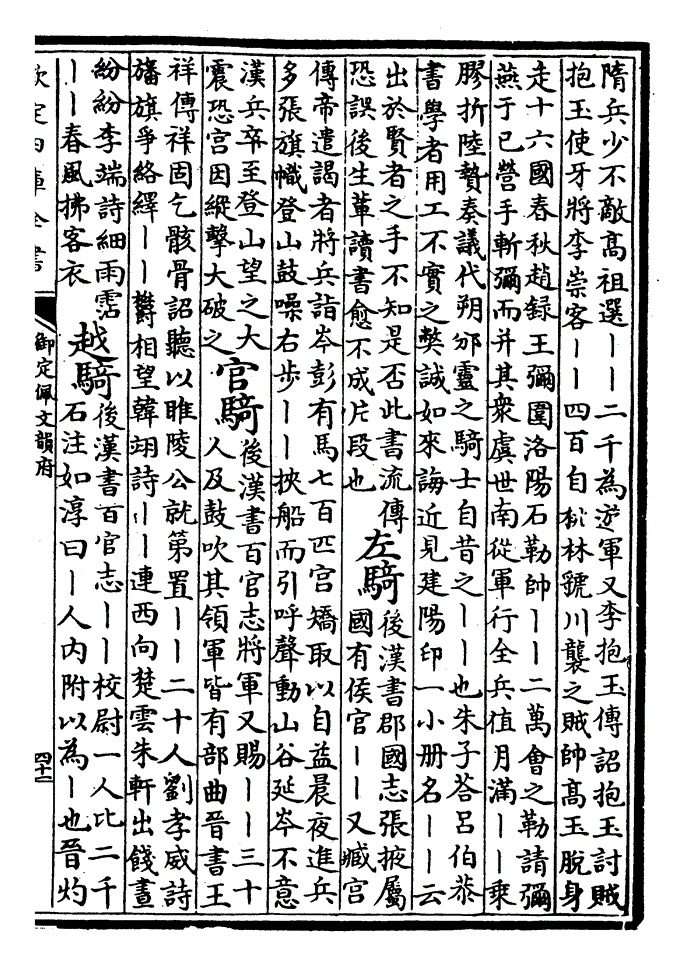 隋兵少不敵髙祖選――二千為逰軍又李抱玉傳詔抱玉討賊
抱玉使牙將李崇客――四百自桃林虢川襲之賊帥髙玉脱身
走十六國春秋趙録王彌圍洛陽石勒帥――二萬㑹之勒請彌
燕于已營手斬彌而并其衆虞世南從軍行全兵值月滿――乗
膠折陸贄奏議代朔邠靈之騎士自昔之――也朱子荅呂伯恭
書學者用工不實之獘誠如來誨近見建陽印一小册名――云
出於賢者之手不知是否此書流傳
恐誤後生輩讀書愈不成片段也
左騎
後漢書郡國志張掖屬
國有侯官――又臧宫
傳帝遣謁者將兵詣岑彭有馬七百匹宫矯取以自益晨夜進兵
多張旗幟登山鼓噪右步――挾船而引呼聲動山谷延岑不意
漢兵卒至登山望之大
震恐宫因縱擊大破之
官騎
後漢書百官志將軍又賜――三十
人及鼓吹其領軍皆有部曲晉書王
祥傳祥固乞骸骨詔聽以睢陵公就第置――二十人劉孝威詩
旛旗爭絡繹――欝相望韓翃詩――連西向楚雲朱軒出餞晝
紛紛李端詩細雨霑
――春風拂客衣
越騎
後漢書百官志――校尉一人比二千
石注如淳曰―人内附以為―也晉灼
欽定四庫全書
御定佩文韻府
四十二